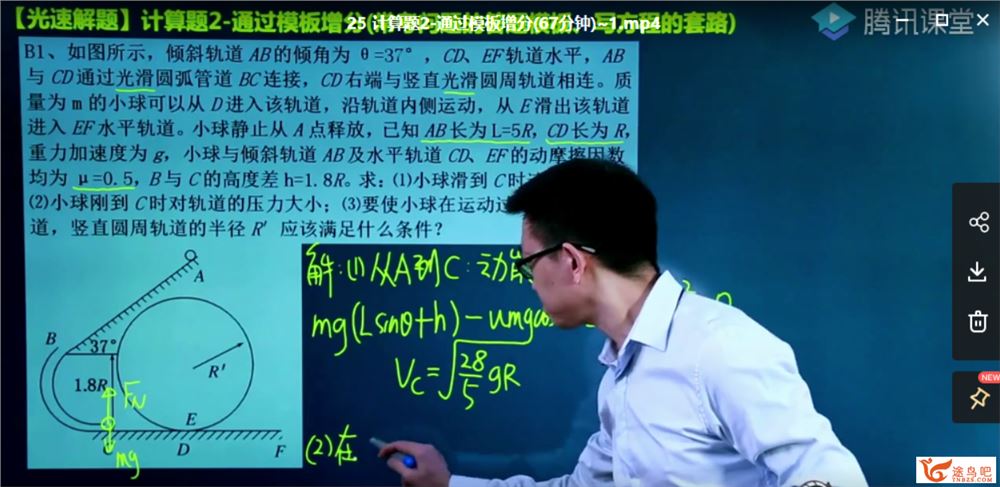 【光速解题】计算题2-通过模板增分
25 计算题2-通过模板增分(67分钟)--1.mp4
的套路)
腾讯课堂
B1、如图所示，倾斜轨道AB的倾角为θ=37°，CD、EF轨道水平，AB
与CD通过光滑圆弧管道BC连接，CD右端与竖直光滑圆周轨道相连。质
量为m的小球可以从D进入该轨道，沿轨道内侧运动，从E滑出该轨道
进入EF水平轨道。小球静止从A点释放，已知AB长为L=5R，CD长为R，
重力加速度为g，小球与倾斜轨道AB及水平轨道CD、EF的动摩擦因数
均为μ=0.5，B与C的高度差h=1.8R。求：(1)小球滑到C时
(2)小球刚到C时对轨道的压力大小；(3)要使小球在运动
道，竖直圆周轨道的半径R′应该满足什么条件？
解:(1)从A到C:动
mg(Lsinθ+h)-umgcos
Vc=√28/5 gR
(2)在
A
B
37°
R′
1.8R
FN
E
D
F
mg
NEW
途鸟吧
TNBZS.COM